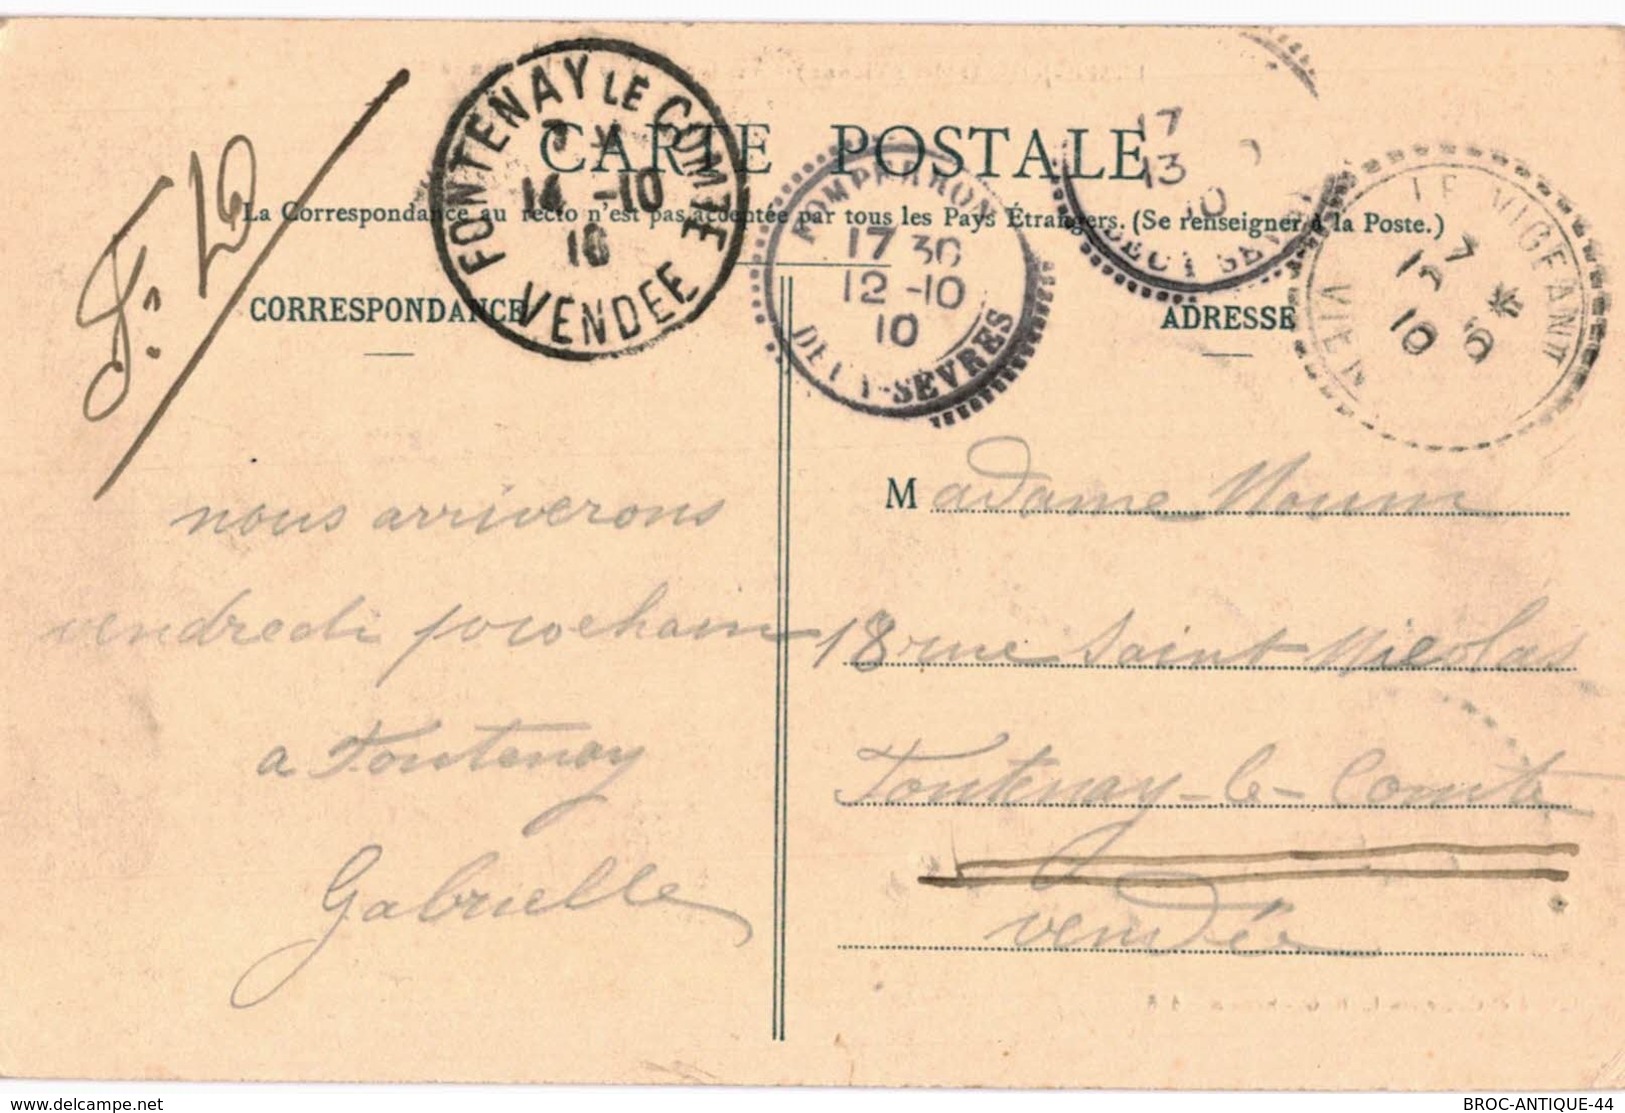 F. 16
FONTENAY LE COMTE
14 -10
10
VENDEE
CARTE POSTALE
La Correspondance au recto n'est pas acceptée par tous les Pays Étrangers. (Se renseigner à la Poste.)
POMPERRON
17 30
12 -10
10
DEUX-SEVRES
17
13
10
DEUX SEV
LE VIGEANT
7 *
10
VIENNE
CORRESPONDANCE
ADRESSE
nous arriverons
vendredi prochain
a Fontenay
Gabrielle
Madame
18 rue Saint Nicolas
Fontenay-le-Comte
Vendée
www.delcampe.net
BROC-ANTIQUE-44